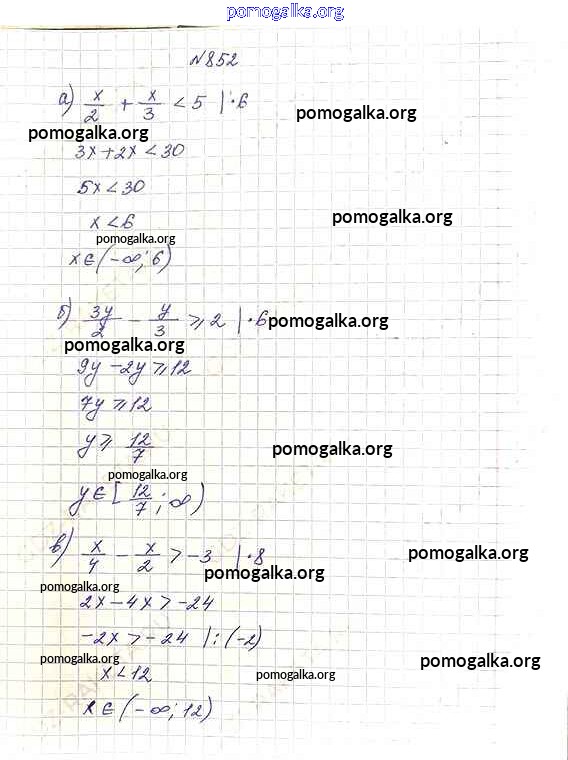 pomogalka.org
N852
а) x/2 + x/3 < 5 |·6
pomogalka.org
pomogalka.org
3x+2x<30
5x<30
x<6
pomogalka.org
pomogalka.org
x∈(-∞;6)
б) 3y/2 - y/3 ⩾ 2 |·6
pomogalka.org
pomogalka.org
9y-2y⩾12
7y⩾12
y⩾ 12/7
pomogalka.org
pomogalka.org
y∈[12/7;∞)
в) x/4 - x/2 > -3 |·8
pomogalka.org
pomogalka.org
pomogalka.org
2x-4x>-24
-2x>-24 |:(-2)
pomogalka.org
pomogalka.org
x<12
pomogalka.org
x∈(-∞;12)